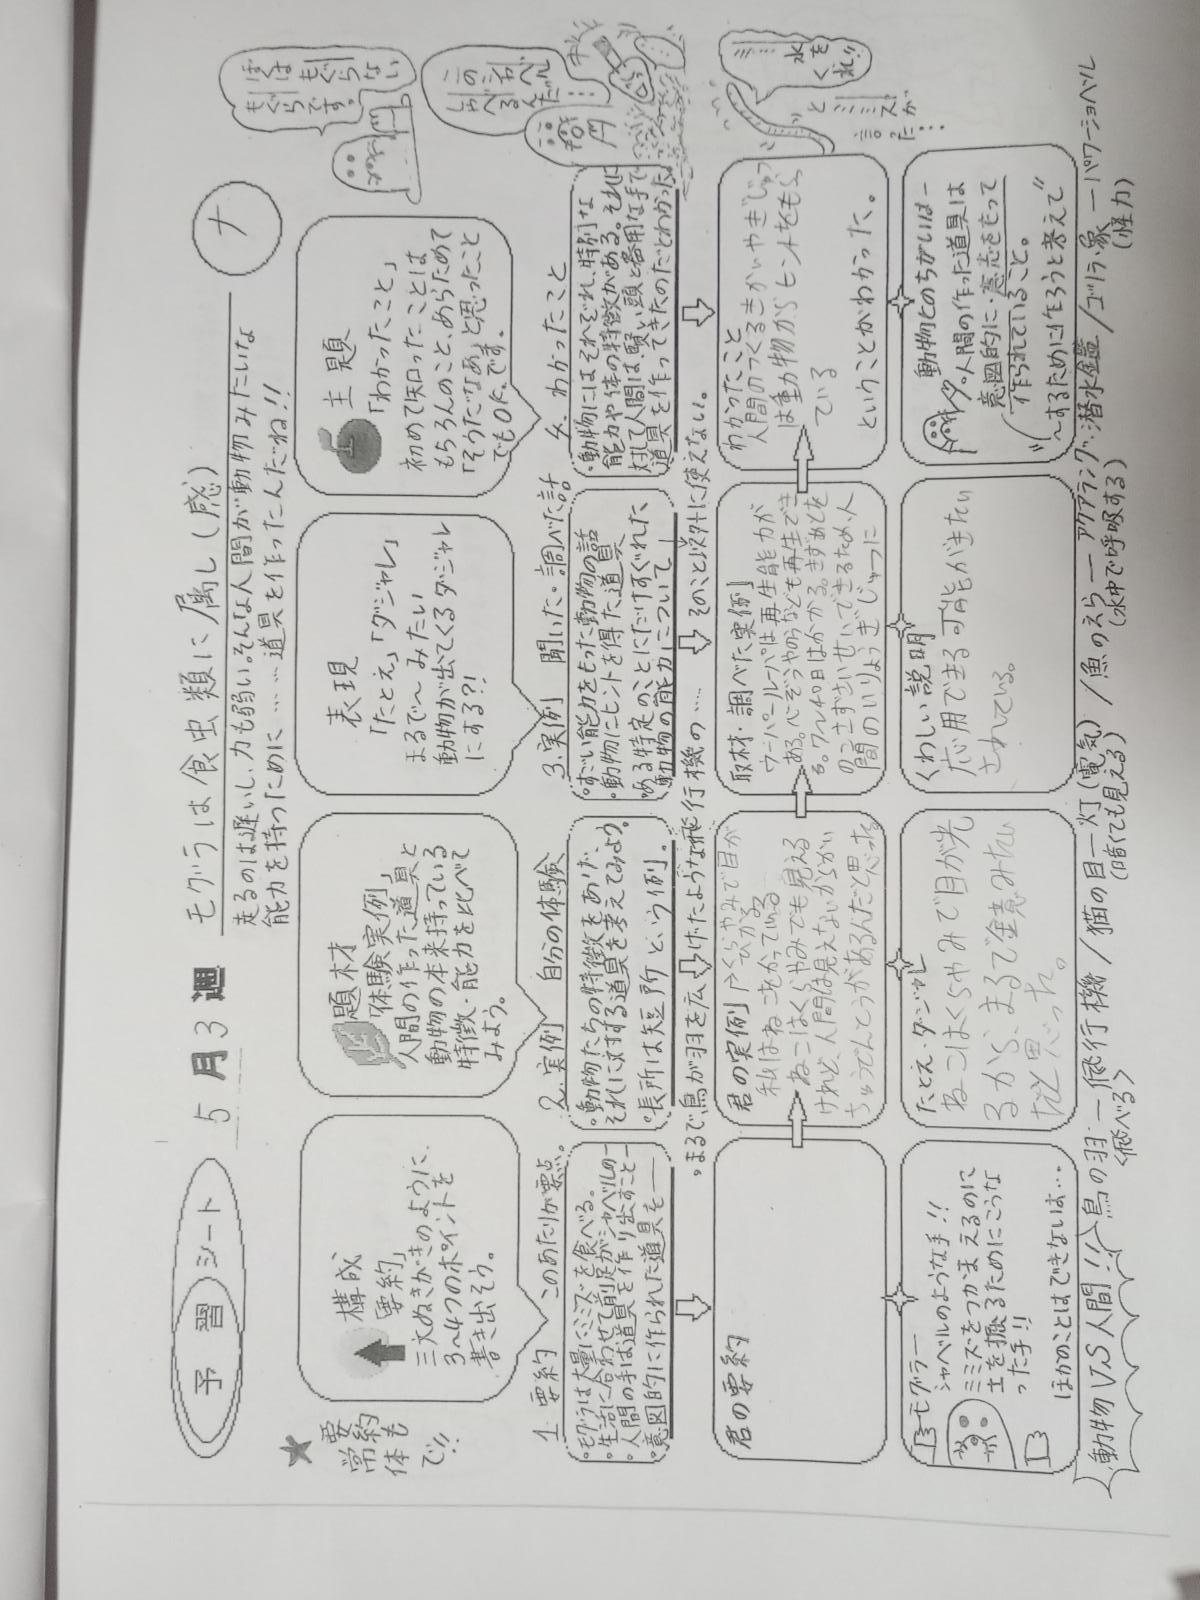 予習シート
5月3週
モグラは食虫類に属し(感)
ナ
走るのは遅いし、力も弱い。そんな人間が動物みたいな
能力を持つために……道具を作ったんだね!!
ぼくは
もぐらない
もぐらです。
★要約
常体も
で!!
構成
「要約」
三大ぬきがきのように、
3〜4つのポイントを
書き出そう。
題材
「体験実例」
人間の作った道具と
動物の本来持っている
特徴・能力を比べて
みよう。
表現
「たとえ」「ダジャレ」
まるで〜みたい
動物が出てくるダジャレ
にする?!
主題
「わかったこと」
初めて知ったことは
もちろんのこと、あらためて
「そうだなあ」と思ったこと
でもOK、です。
このシャベル
しゃべるんだ…
1. 要約 このあたりが要点。
・モグラは大量にミミズを食べる。
・生活に合わせて前足がシャベルの一
・人間の手は道具を作り出すこと一
・意図的に作られた道具を――
2. 実例 自分の体験
・動物たちの特徴をあげ、
それに対する道具を考えてみよう。
・“長所は短所”という例。
3. 実例 聞いた・調べた話
・すごい能力をもった動物の話
・動物にヒントを得た道具
・ある特定のことにだけすぐれた
動物の能力について
4. わかったこと
・動物にはそれぞれ、特別な
能力や体の特徴がある。それに
対して人間は、賢い頭と器用な手で
道具を作ってきたのだとわかった
。まるで鳥が羽を広げたような飛行機の…… そのこと以外に使えない。
君の要約
君の実例 くらやみで目が
ひかる
私はねこをかっている
ねこはくらやみでも見える
けれど、人間は見えないからかい
ちゅうでんとうがあるんだと思った
取材・調べた実例
ウーパールーパーは再生能力が
ある。心ぞうやのうなども再生でき
る。
わかったこと
人間のつくるきかいやぎじゅつ
は動物からヒントをもらっ
ている
ということがわかった。
水を
くれ!!
とミミズが
言ったが…
モグラー
シャベルのような手!!
ミミズをつかまえるのに
土を掘るためにこうな
った手!!
ほかのことはできないは…
たとえ・ダジャレ
ねこはくらやみで目が光
るから、まるで金意みたい
だと思った。
くわしい説明
応用できる可能がきたい
されている。
動物とのちがいは―
・人間の作った道具は
意図的に・意志をもって
作られていること。
“〜するために作ろうと考えて”
動物VS人間!! 鳥の羽―飛行機/猫の目―灯(電気)/魚のえら――アクアラング・潜水艦/ゴリラ・象―パワーショベル
<飛べる> (暗くても見える) (水中で呼吸する) (怪力)